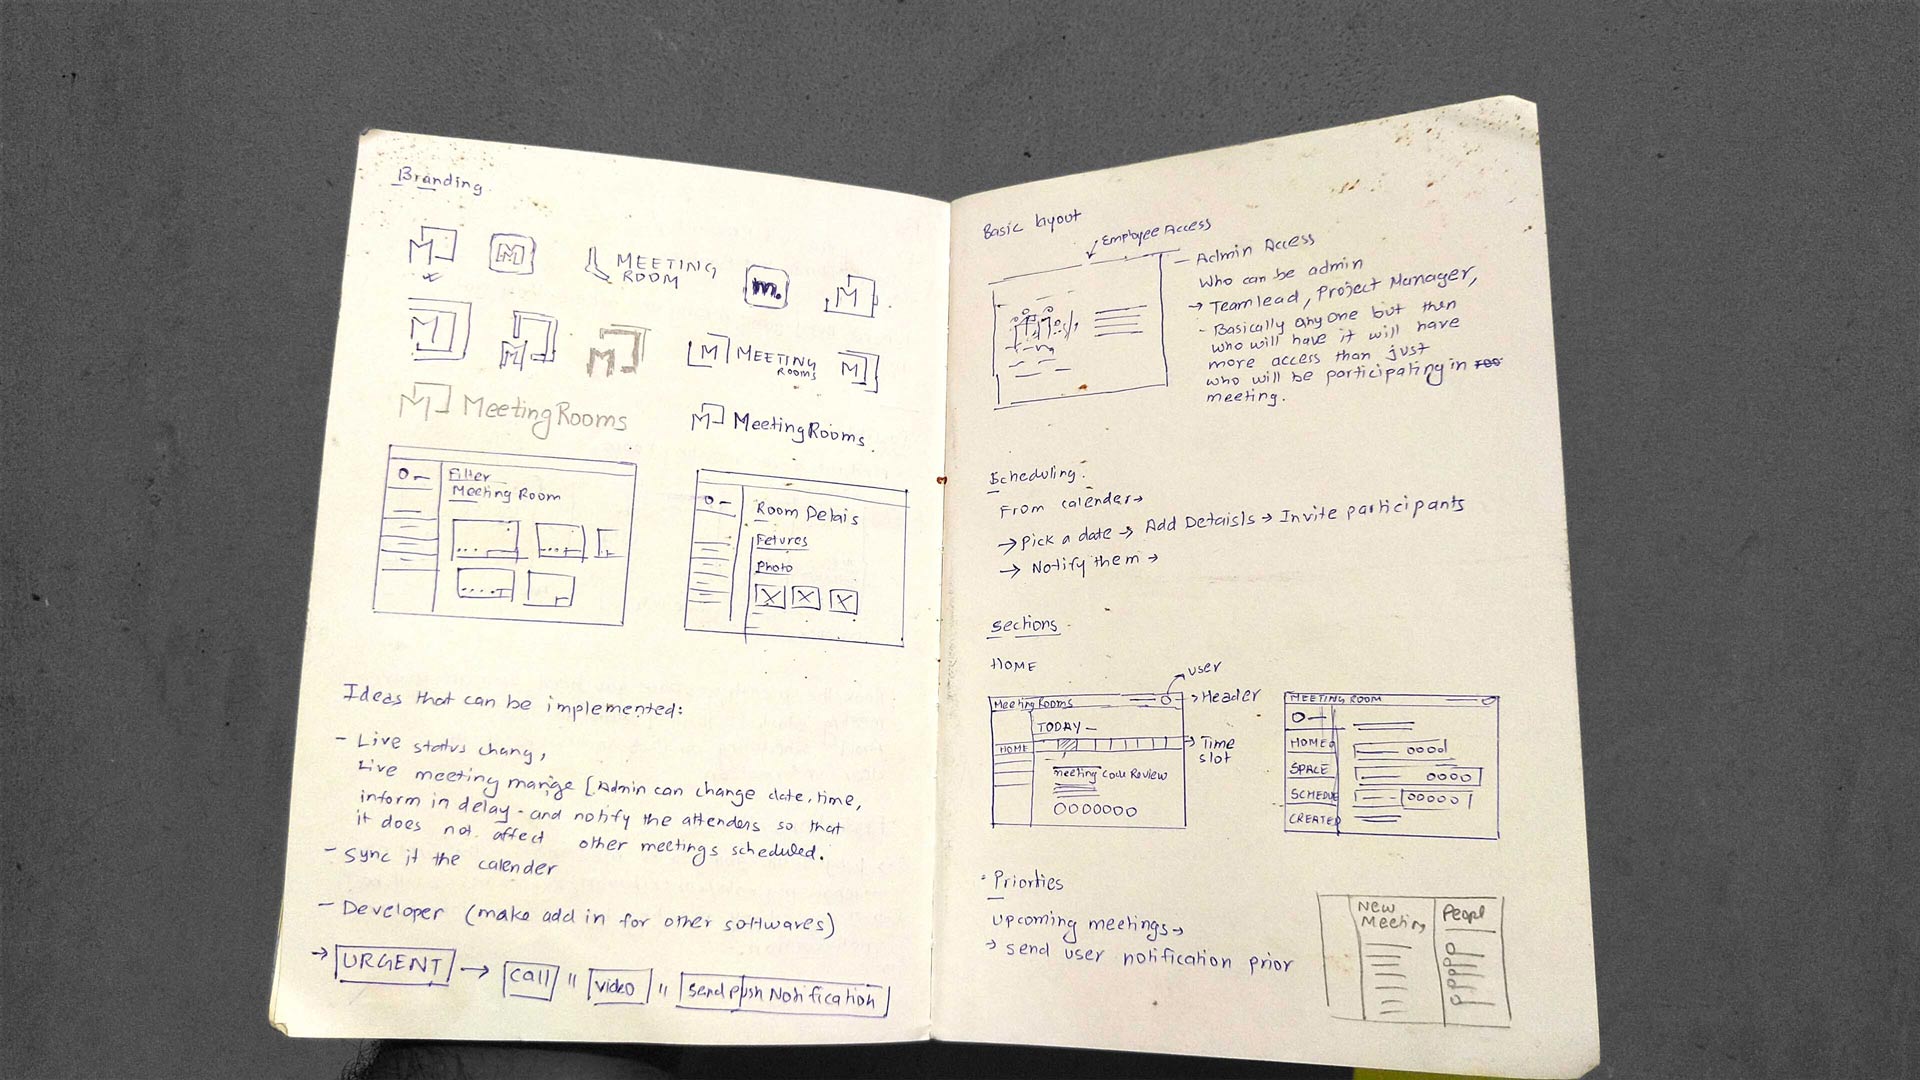 Branding
M
M
MEETING
ROOM
m.
M
M
M
M
M MEETING
ROOMS
M
M MeetingRooms
M MeetingRooms.
Filter
Meeting Room
Room Detais
Fetures
Photo
Ideas that can be implemented:
- Live status chang,
Live meeting mange [Admin can change date, time,
inform in delay - and notify the attenders so that
it does not affect other meetings scheduled.
- Sync it the calender
- Developer (make add in for other softwares)
→ URGENT → Call " video " Send push Notification
Basic layout
Employee Access
- Admin Access
Who can be admin
→ Teamlead, Project Manager,
- Basically any one but then
who will have it will have
more access than just
who will be participating in
meeting.
Scheduling.
From calender→
→ Pick a date → Add Detaisls → Invite participants
→ Notify them →
Sections
HOME
user
Header
MeetingRooms
TODAY -
HOME
Time
slot
meeting Code Review
MEETING ROOM
HOME
SPACE
SCHEDUE
CREATED
Priorties
Upcoming meetings→
→ send user notification prior
New
Meeting
Peopl